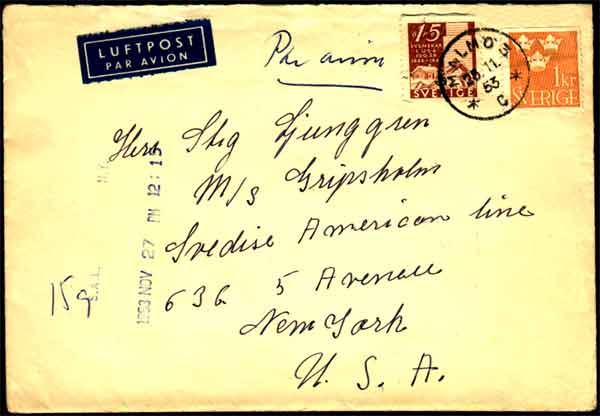 LUFTPOST
PAR AVION
Par avion
15
SVENSKAR
I USA
SVERIGE
MALMÖ 3
25.11.
53
C
1 kr
SVERIGE
Herr Stig Ljunggren
M/S Gripsholm
Svedise American line
636 5 Avenue
New York
U. S. A.
N.Y.
1953 NOV 27 PM 12:15
S.A.L.
15g